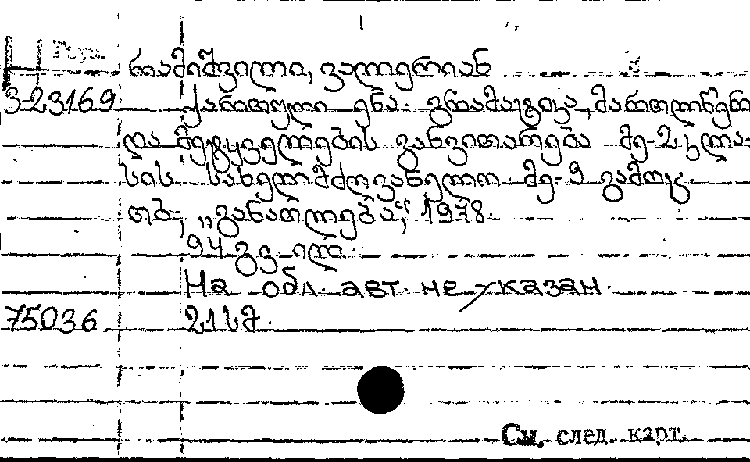 Н Груз.
რამიშვილი, ვალერიან
3-23169 ქართული ენა. გრამატიკა, მართლწერა
და მეტყველების განვითარება მე-2 კლა-
სის სახელმძღვანელო მე-9 გამოც.
თბ., „განათლება“, 1978.
94 გვ. ილ.
На обл. авт. не указан.
75036 21 სმ.
См. след. карт.